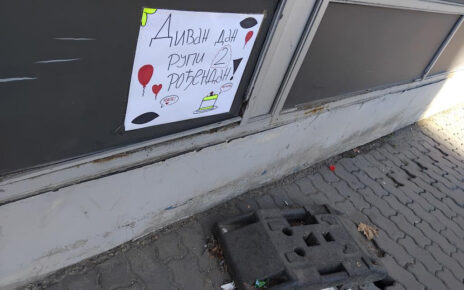 Диван дан
рупи 2
рођендан!